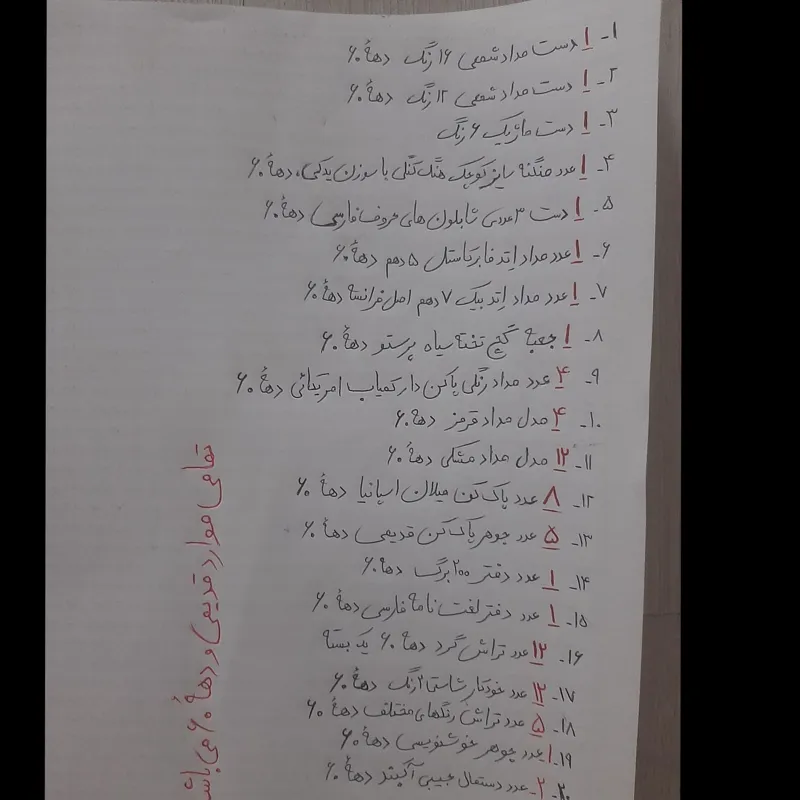 ۱- ۱ دست مداد شمعی ۱۶ رنگ دههٔ ۶۰
۲- ۱ دست مداد شمعی ۱۲ رنگ دههٔ ۶۰
۳- ۱ دست ماژیک ۶ رنگ
۴- ۱ عدد منگنه سایز کوچک هنگ کنگی با سوزن یدکی، دههٔ ۶۰
۵- ۱ دست ۳ عددی شابلون های حروف فارسی دههٔ ۶۰
۶- ۱ عدد مداد اِتد فابرکاستل ۵ دهم دههٔ ۶۰
۷- ۱ عدد مداد اِتد بیک ۷ دهم اصل فرانسه دههٔ ۶۰
۸- ۱ جعبه گچ تخته سیاه پرستو دههٔ ۶۰
۹- ۴ عدد مداد رنگی پاکن دار کمیاب امریکائی دههٔ ۶۰
۱۰- ۴ مدل مداد قرمز دههٔ ۶۰
۱۱- ۱۲ مدل مداد مشکی دههٔ ۶۰
۱۲- ۸ عدد پاک کن میلان اسپانیا دههٔ ۶۰
۱۳- ۵ عدد جوهر پاک کن قدیمی دههٔ ۶۰
۱۴- ۱ عدد دفتر ۲۰۰ برگ دههٔ ۶۰
۱۵- ۱ عدد دفتر لغت نامه فارسی دههٔ ۶۰
۱۶- ۱۲ عدد تراش گرد دههٔ ۶۰ یک بسته
۱۷- ۱۲ عدد خودکار شانسی ۲ رنگ دههٔ ۶۰
۱۸- ۵ عدد تراش رنگهای مختلف دههٔ ۶۰
۱۹- ۱ عدد جوهر خوشنویسی دههٔ ۶۰
۲۰- ۲ عدد دستمال جیبی آکبند دههٔ ۶۰
تمامی موارد قدیمی و دههٔ ۶۰ می باش